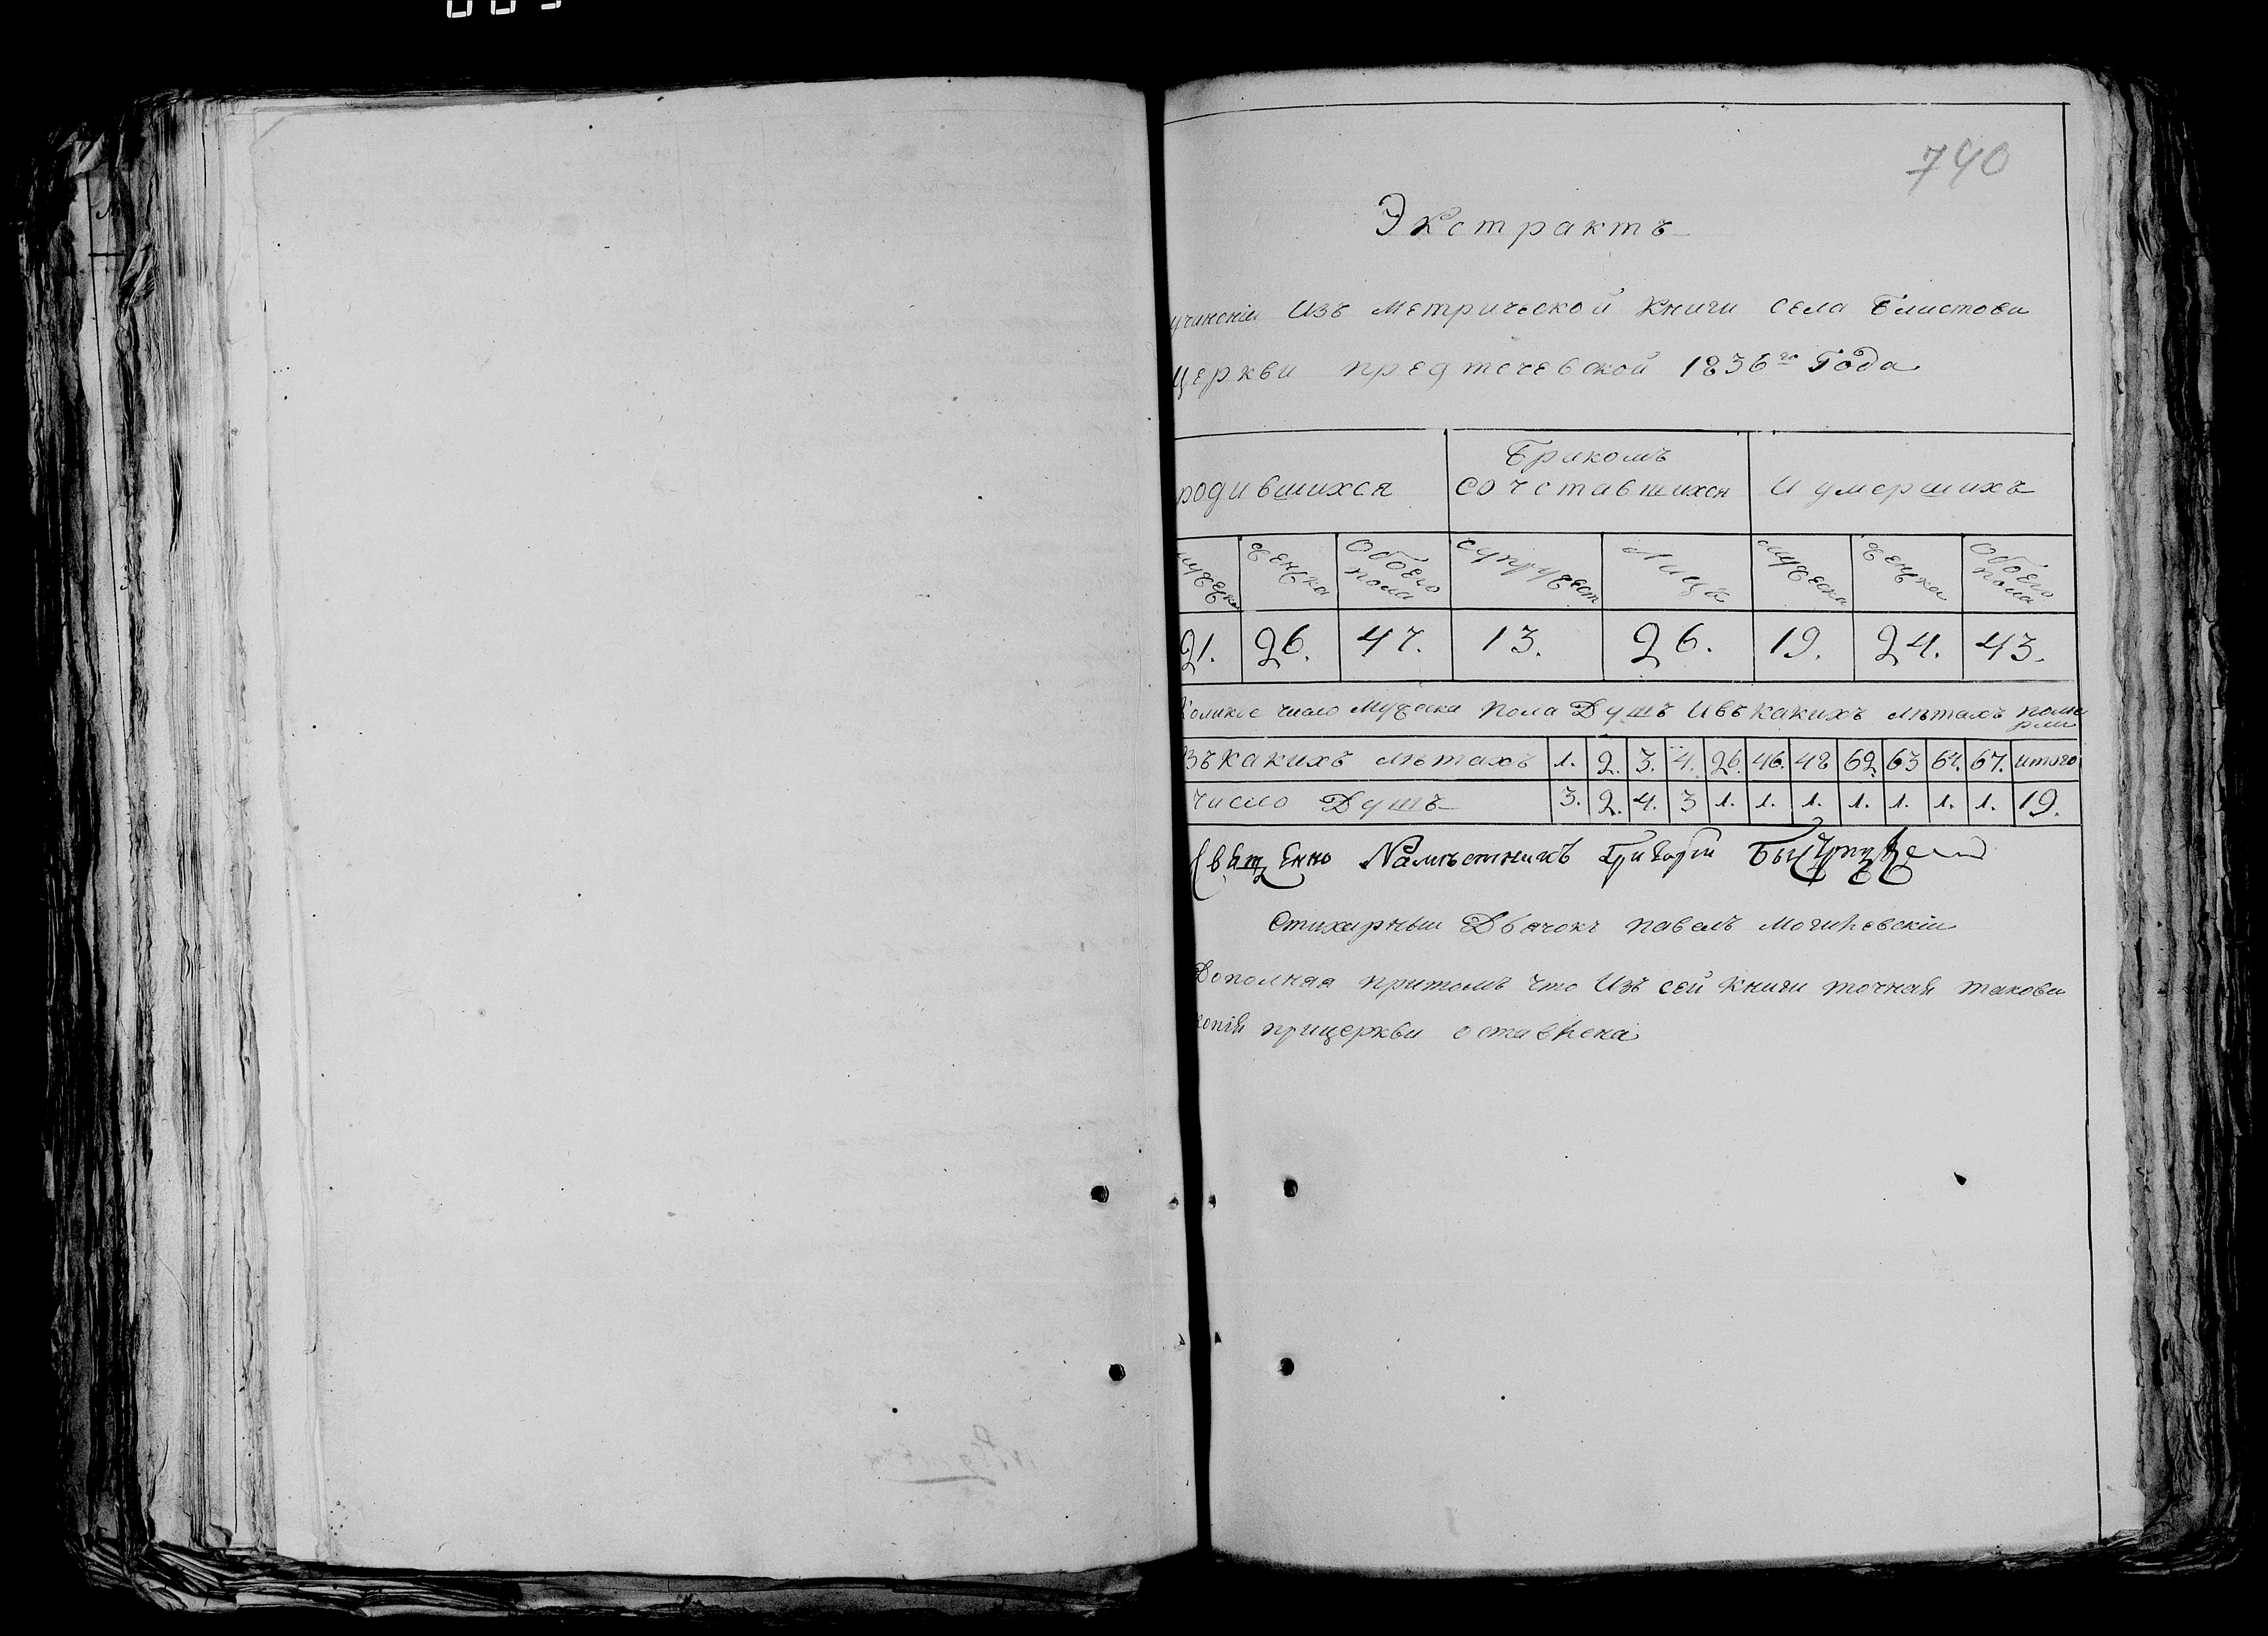 740
Экстрактъ
учиненіи Изъ Метрическои Книги Села Блистови
церкви предтечевской 1836го Года
родившихся Бракомъ Сочетавшихся И умершихъ
мужеска женска Обоего пола супружест Лица мужеска женска Обоего пола
21. 26. 47. 13. 26. 19. 24. 43.
Коликое число Мужеска пола Душъ Ивъ какихъ лѣтахъ померли
Въ какихъ лѣтахъ 1. 2. 3. 4. 26. 46. 48 62 63 64. 67. итого
число Душъ 3. 2. 4. 3 1. 1. 1. 1. 1. 1. 1. 19.
Священно Намѣстникъ Григорій
Стихарныи Дьячокъ павелъ Могилевскіи
Дополняя притомъ что Изъ сей книги точная такова
копія прицеркви оставлена